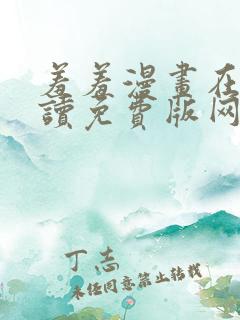 羞羞漫畫在
讀免費版网
丁志
未经同意禁止转载